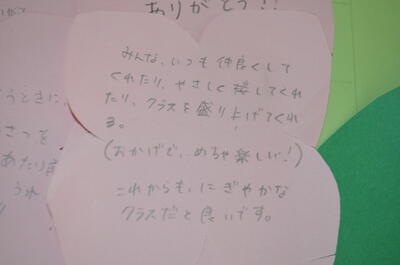 ありがとう!!
みんな、いつも仲良くして
くれたり、やさしく接してくれ
たり、クラスを盛り上げてくれ
る。
(おかげで、めちゃ楽しい!)
これからも、にぎやかな
クラスだと良いです。
うときに
さつを
あたり前
うれ